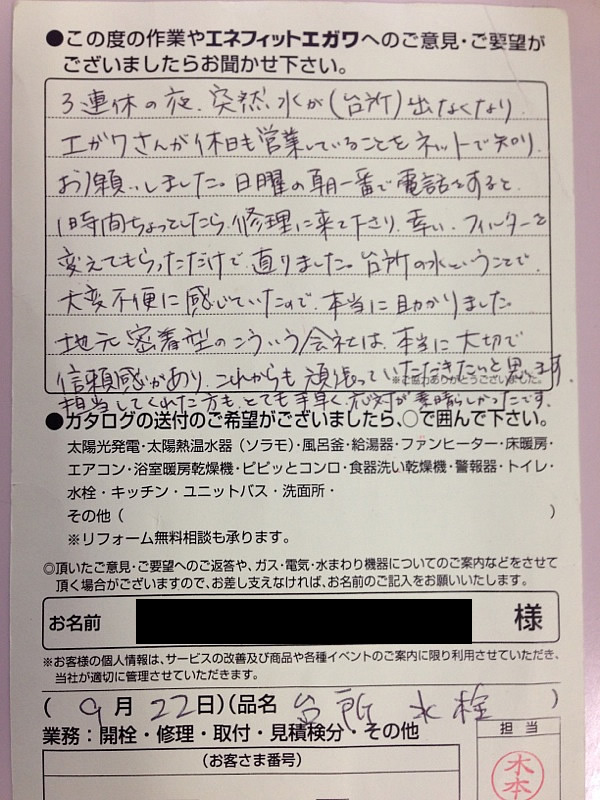 ●この度の作業やエネフィットエガワへのご意見・ご要望が
ございましたらお聞かせ下さい。
3連休の夜、突然、水が(台所)出なくなり、
エガワさんが休日も営業していることをネットで知り、
お願いしました。日曜の朝一番で電話をすると、
1時間ちょっとしたら、修理に来て下さり、幸い、フィルターを
変えてもらっただけで、直りました。台所の水ということで、
大変不便に感じていたので、本当に助かりました。
地元密着型のこういう会社は、本当に大切で
信頼感があり、これからも頑張っていただきたいと思います。
※ご協力ありがとうございました。
担当してくれた方も、とても手早く、応対が素晴らしかったです。
●カタログの送付のご希望がございましたら、○で囲んで下さい。
太陽光発電・太陽熱温水器(ソラモ)・風呂釜・給湯器・ファンヒーター・床暖房・
エアコン・浴室暖房乾燥機・ピピッとコンロ・食器洗い乾燥機・警報器・トイレ・
水栓・キッチン・ユニットバス・洗面所・
その他( )
※リフォーム無料相談も承ります。
◎頂いたご意見・ご要望へのご返答や、ガス・電気・水まわり機器についてのご案内などをさせて
頂く場合がございますので、お差し支えなければ、お名前のご記入をお願いいたします。
お名前 様
※お客様の個人情報は、サービスの改善及び商品や各種イベントのご案内に限り利用させていただき、
当社が適切に管理させていただきます。
(9月22日)(品名 台所 水栓 )
業務:開栓・修理・取付・見積検分・その他
担当
(お客さま番号)
木本